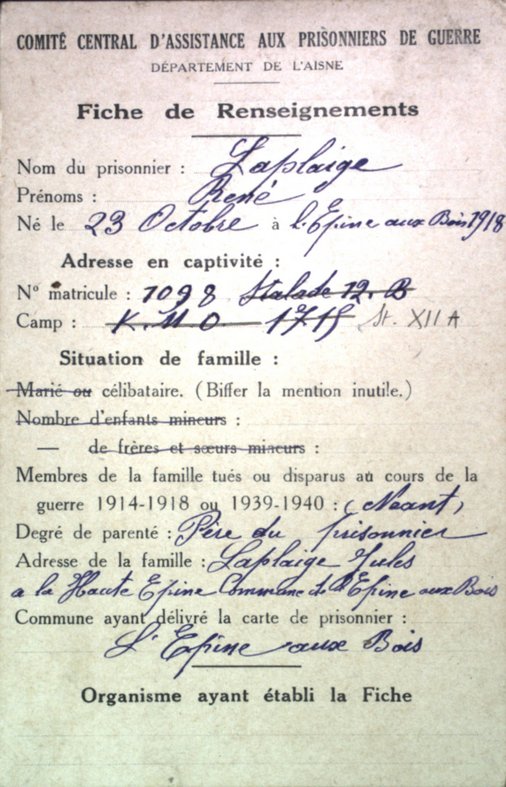 COMITÉ CENTRAL D'ASSISTANCE AUX PRISONNIERS DE GUERRE
DÉPARTEMENT DE L'AISNE
Fiche de Renseignements
Nom du prisonnier : Laplaige
Prénoms : René
Né le 23 Octobre à l'Epine aux Bois 1918
Adresse en captivité :
N° matricule : 1098 Stalade 12. B
Camp : K. M O 1715 St. XII A
Situation de famille :
Marié ou célibataire. (Biffer la mention inutile.)
Nombre d'enfants mineurs :
— de frères et sœurs mineurs :
Membres de la famille tués ou disparus au cours de la
guerre 1914-1918 ou 1939-1940 : (Neant)
Degré de parenté : Père du prisonnier
Adresse de la famille : Laplaige Jules
a la Haute Epine Commune de l'Epine aux Bois
Commune ayant délivré la carte de prisonnier :
L'Epine aux Bois
Organisme ayant établi la Fiche